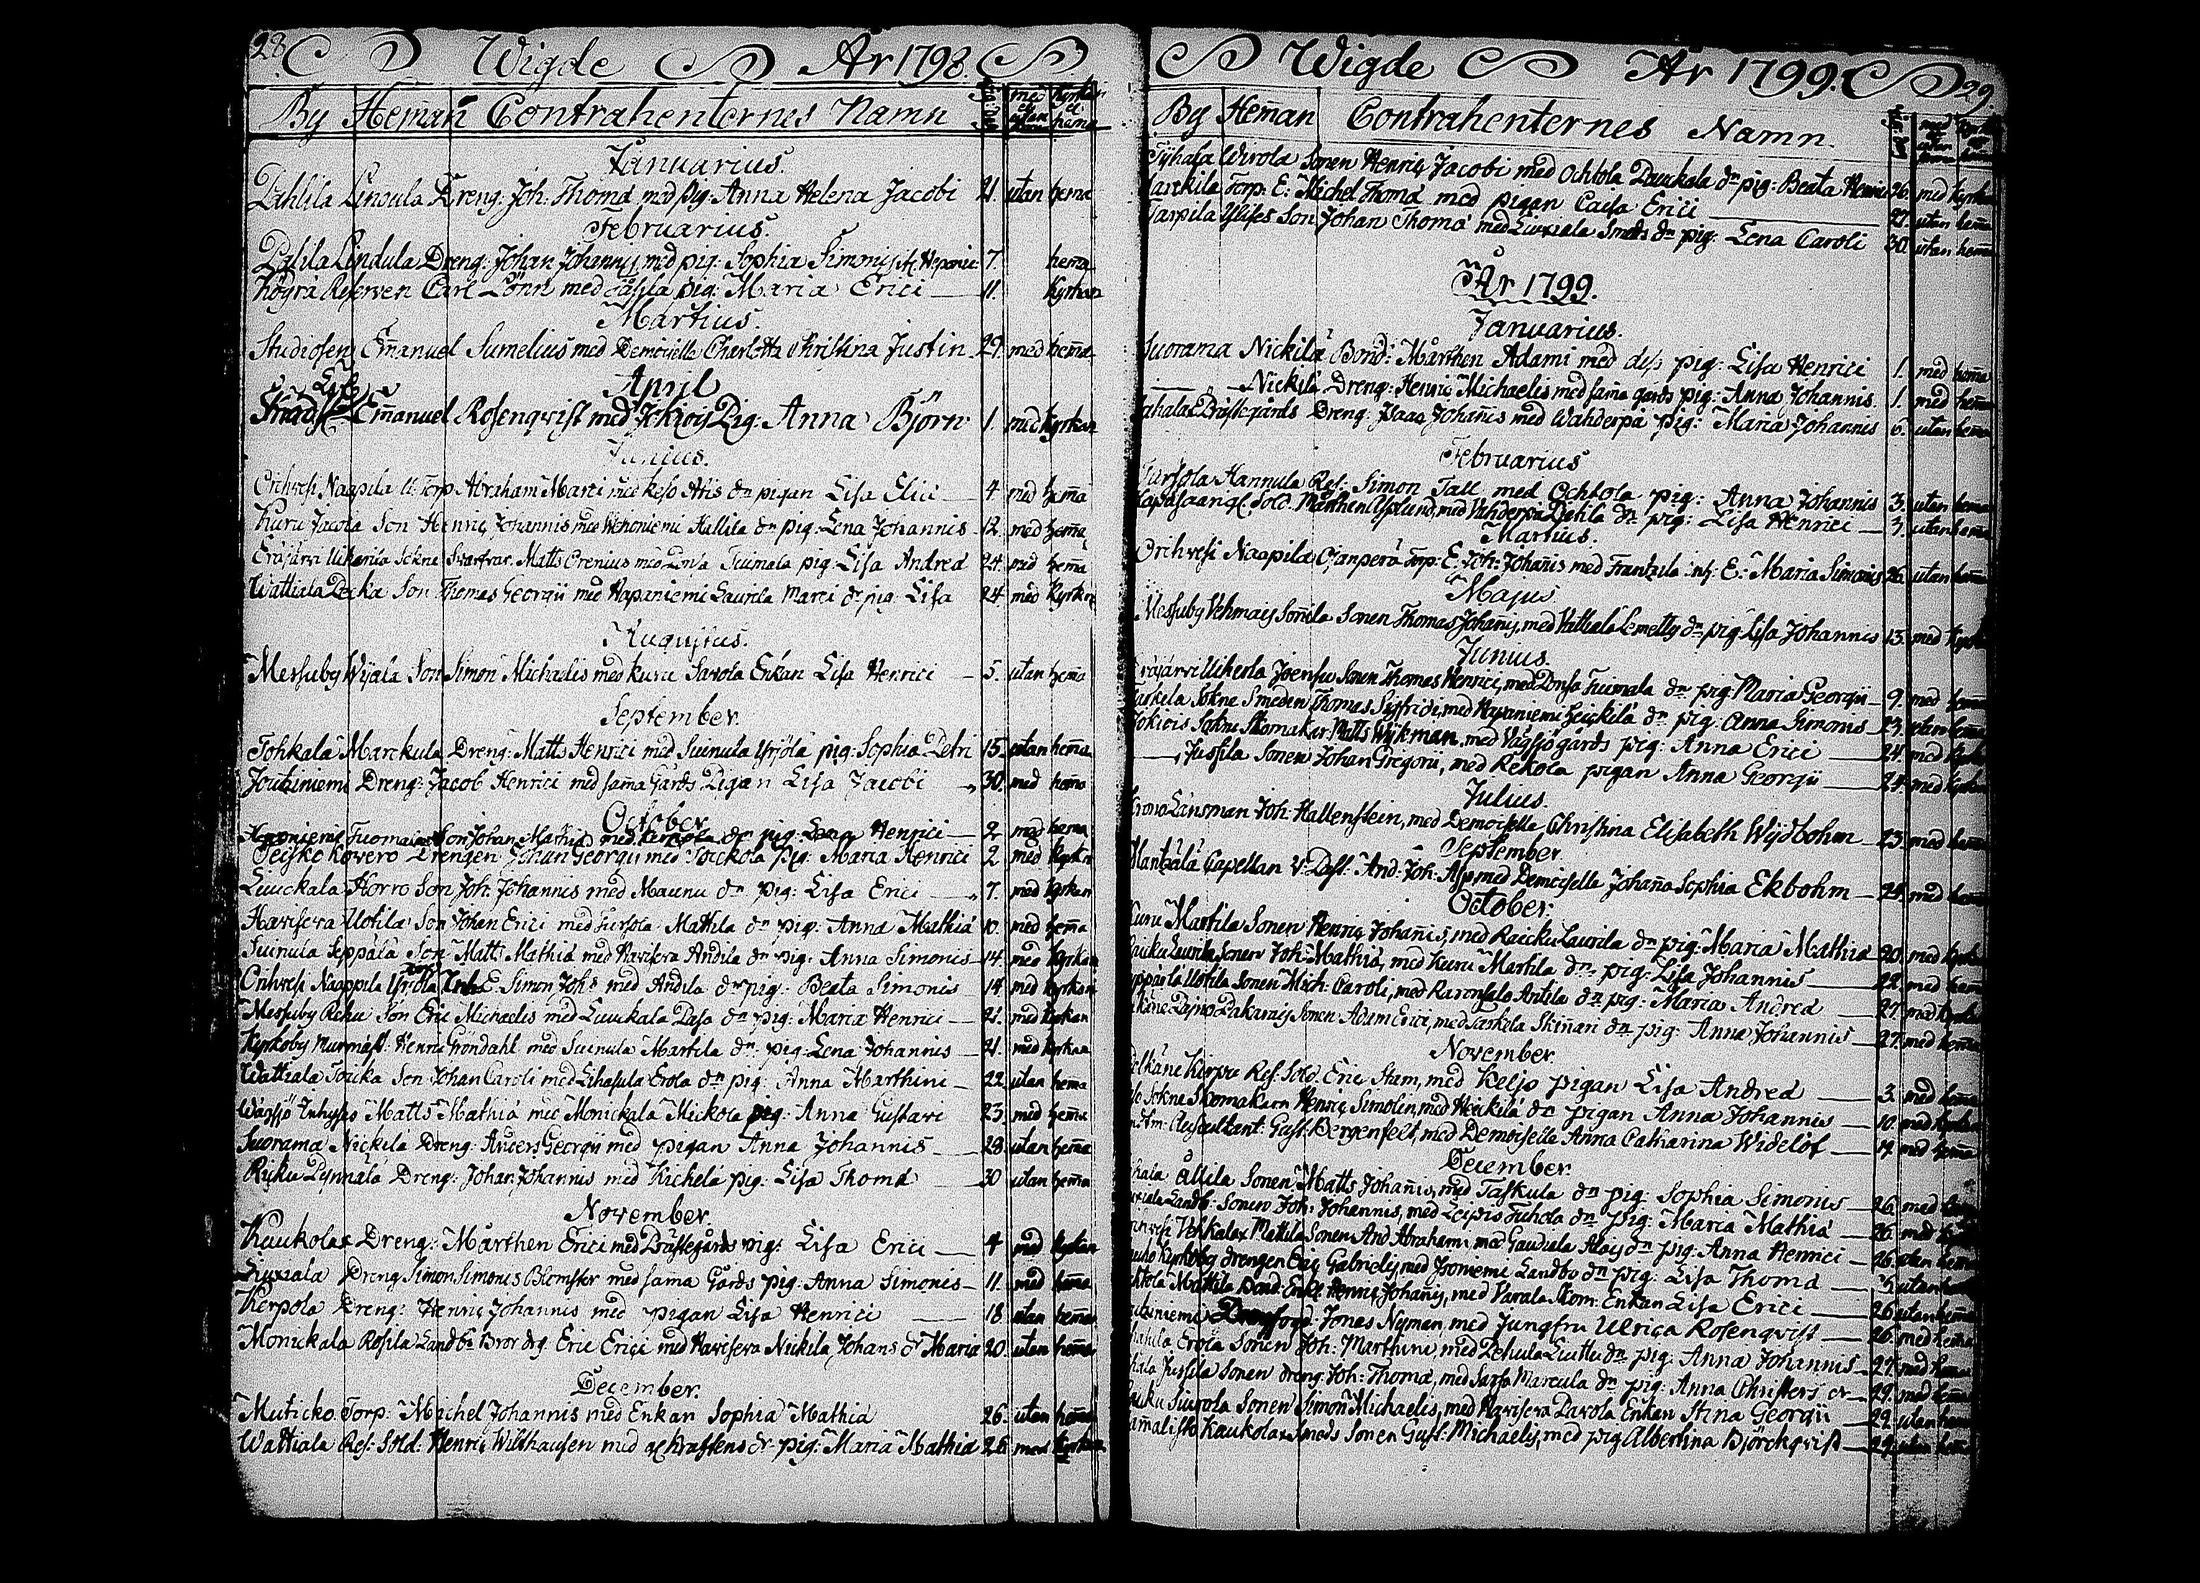 28. Wigde År 1798.
By Heman Contrahenternes Namn med el utan kyrkan el. hema
Januarius.
Pahlila Linsula Dreng: Joh: Thomæ med pig: Anna Helena Jacobi 21. utan hema
Februarius.
Pälila Lindula Dreng: Johan Johannis med pig: Sophia Simonis 7. hema
Reserven Carl Lönn med pig: Maria Erici 11. kyrkan
Martius.
Studiosen Emanuel Sumelius med Demoiselle Charlotta Christina Justin 29. med hema
April
Emanuel Rosenqvist med Jokiois Pig: Anna Björn 1. med kyrkan
Junius.
Orihvesi Naapila Torp Abraham Marci med Atis dn pigan Lisa Elici 4 med hema
Kuru Jacola Son Henric Johannis med Wehoniemi Hallila dn pig: Lena Johannis 12. med hema
Eräjärvi Sokne Matts Orenius med Tuimala pig Lisa Andreæ 24. med hema
Wattiala Pocka Son Thomas Georgii med Hapaniemi Laurila Marci dr pig: Lisa 24. med kyrkan
Augustus.
Messuby Wijala Son Simon Michaelis med Kuru Savola Enkan Lisa Henrici 5. utan hema
September.
Tohkala Marckula Dreng: Matts Henrici med Suinula Yrjölä pig: Sophia Petri 15. utan hema
Joutziniemi Dreng: Jacob Henrici med sama Gårds Pigan Lisa Jacobi 30. med hema
October
Haponiemi Tuomaia Son Johan Mathiæ med dr pig: Lena Henrici 2. med hema
Teisko Kovero Drengen Johan Georgii med Toickola Pig: Maria Henrici 2 med kyrkan
Liuckala Horro Son Joh: Johannis med Maunu dn pig: Lisa Erici 7. med kyrkan
Haviseva Uotila Son Johan Erici med Mattila dn pig: Anna Mathiæ 10. med hema
Suinula Seppälä Son Matts Mathiæ med Havisera Andila dn pig: Anna Simonis 14. med kyrkan
Orihvesi Naappila Yrjölä E. Simon Johs med Andila dr pig: Beata Simonis 14. med kyrkan
Messuby Reku Son Eric Michaelis med Liuckala Pasa dn pig: Maria Henrici 21. med kyrkan
Kyrkoby Henric Gröndahl med Suinula Martila dn: pig: Lena Johannis 21. med kyrkan
Wattiala Toicka Son Johan Caroli med Lihasula Erola dn pig: Anna Marthini 22 utan hema
Wägsjö Inhyses Matts Mathiæ med Monickala Mickola pig: Anna Gustavi 23. med hema
Suorama Nickilä Dreng: Anders Georgii med pigan Anna Johannis 28 utan hema
Ruku Pynnälä Dreng: Johan Johannis med Kickelä pig: Lisa Thomæ 30 utan hema
November.
Kaukola Dreng: Mårthen Erici med Prästegårds pig: Lisa Erici 4 med kyrkan
Liuxiala Dreng Simon Simonis Blomster med sama Gårds pig: Anna Simonis 11. med hema
Kerpola Dreng: Henric Johannis med pigan Lisa Henrici 18 utan hema
Monickala Rosila Landb: Bror drg. Eric Erici med Havisera Nickilä Johans dr Maria 20. utan hema
December.
Muticko Torp: Michel Johannis med Enkan Sophia Mathiæ 26. utan hema
Wattiala Res: Sold: Henric Wilthausen med pig: Maria Mathiæ 26. med kyrkan
Wigde År 1799. 29
By Heman Contrahenternes Namn.
Tÿhala Wirola Sonen Henric Jacobi med Ochtola Pauckala dn pig: Beata Henrici 26. med kyrkan
Torp: E: Michel Thomæ med pigan Caisa Erici 27. utan hema
Tarpila Son Johan Thomæ med Liuxiala Smeds dn pig: Lena Caroli 30 utan hema
År 1799.
Januarius.
Suorama Nickilä Bond: Mårthen Adami med dess pig: Lisa Henrici 1. med hema
Nickilä Dreng: Henric Michaelis med sama gårds pig: Anna Johannis 1. med hema
Prästegårds Dreng: Isaac Johannis med Wahderpä pig: Maria Johannis 6. utan hema
Februarius
Hannula Res: Simon Tall med Ochtola pig: Anna Johannis 3. utan hema
Sold: Mårthen Asplund, med Vahderpä Pahila dn pig: Lisa Henrici 3. utan hema
Martius.
Orihvesi Naapila Ojanperä Torp: E. Joh: Johannis med Frantzila inh: E: Maria Simonis 26. utan hema
Majus
Messuby Vehmais Sonila Sonen Thomas Johannis, med Vattiala Lemetty dn pig: Lisa Johannis 13. med kyrkan
Junius.
Joensu Sonen Thomas Henrici, med Ponsa Tuimala dn pig: Maria Georgii 9. med hema
Sokne Smeden Thomas Sigfridi, med Hapaniemi Heickilä dn pig: Anna Simonis 23. utan hema
Jokiois Sokne Skomakar: Matts Wijkman, med Vägsjögårds pig: Anna Erici 24. med kyrkan
Jussila Sonen Johan Gregorii, med Rekola pigan Anna Georgii 24. med kyrkan
Julius.
Krono Länsman Joh: Hallenstein, med Demoiselle Christina Elisabeth Wijdbohm 23. med hema
September.
Capellan V: Past: And: Joh: Asp med Demoiselle Johana Sophia Ekbohm 24. med hema
October.
Kuru Martila Sonen Henric Johannis, med Raicku Laurila dn pig: Maria Mathiæ 20. med kyrkan
Raicku Laurila Sonen Joh: Mathiæ, med Kuru Martila dn pig: Lisa Johannis 22. med hema
Uotila Sonen Mich: Caroli, med Ravonsalo Antila dn pig: Maria Andreæ 27. med kyrkan
Sonen Adam Erici, med Saskela Skinari dn pig: Anna Johannis 27. med hema
November.
Pelkäne Res: Sold: Eric Stam, med Keljo pigan Lisa Andreæ 3. med hema
Sokne Skomakarn Henric Simolin, med Heickilä dn pigan Anna Johannis 10. med kyrkan
Auscultant: Gust: Bergenfelt, med Demoiselle Anna Catharina Widelöf 14. med hema
December.
Ållila Sonen Matts Johannis, med Taskula dn pig Sophia Simonis 26. med
Landb: Sonen Joh: Johannis, med Leipis Juhola dn pig: Maria Mathiæ 26. med
Vehkalax Mattila Sonen And: Abrahami med dn pig: Anna Henrici 26. utan hema
Kyrkoby drengen Eric Gabrielis, med Isoniemi Landbo dn pig: Lisa Thomæ utan
Mattila Bond: Henric Johannis, med Varala Skom: Enkan Lisa Erici 26 utan hema
Jonas Nyman, med Jungfru Ulrica Rosenqvist 26. med hema
Erola Sonen Joh: Marthini med Pehula Liuttu dn pig: Anna Johannis 27. med hema
Jussila Sonen dreng: Joh: Thomæ, med Marcula dn pig: Anna Christers dr 29. med hema
Siurola Sonen Simon Michaelis, med Havisera Pavola Enkan Stina Georgii 29. utan hema
Kaukola Smeds Sonen Gust: Michaelis, med pig Albertina Björckqvist 29. utan hema